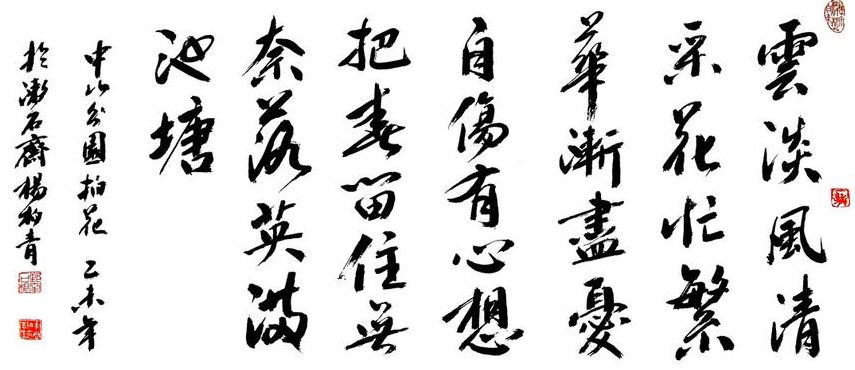 雲淡風清
采花忙繁
華漸盡憂
自傷有心想
把春留住無
奈落英滿
池塘
中山公園拍花 乙未年
於漱石齋楊青